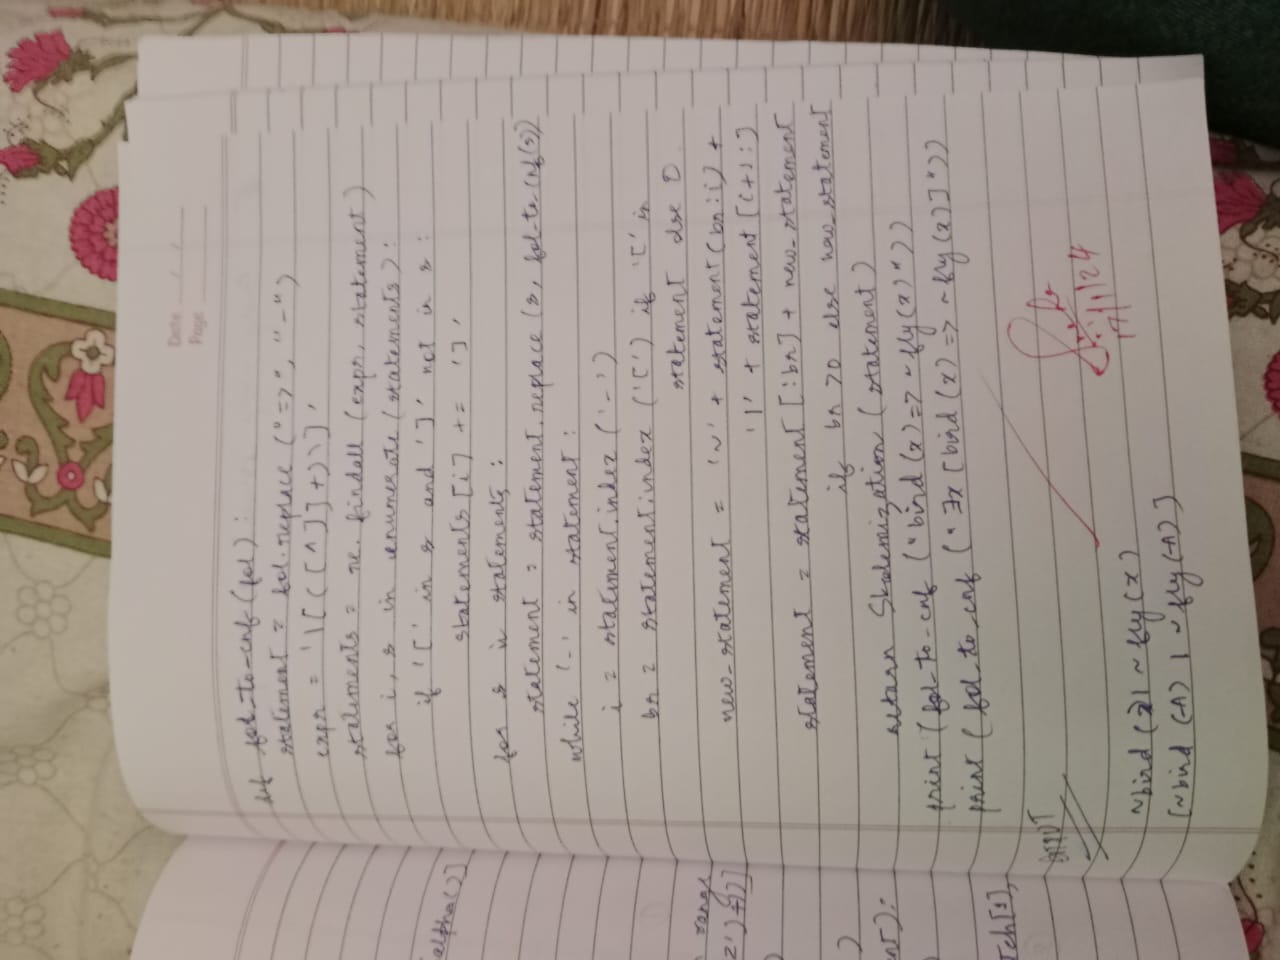 Date / /
Page
def fol-to-cnf(fol):
statement = fol.replace("=>", "-")
expr = '\[([^]]+)\]'
statements = re.findall(expr, statement)
for i, s in enumerate(statements):
if '[' in s and ']' not in s:
statements[i] += ']'
for s in statements:
statement = statement.replace(s, fol-to-cnf(s))
while '-' in statement:
i = statement.index('-')
br = statement.index('[') if '[' in
statement else 0
new-statement = '~' + statement(br:i) +
'|' + statement[i+1:]
statement = statement[:br] + new-statement
if br > 0 else new-statement
return Skolemization(statement)
print(fol-to-cnf("bird(x)=>~fly(x)"))
print(fol-to-cnf("∃x[bird(x)=>~fly(x)]"))
OUTPUT
~bird(x)|~fly(x)
[~bird(A)|~fly(A)]
alpha()]
range
ent):
tch[1],